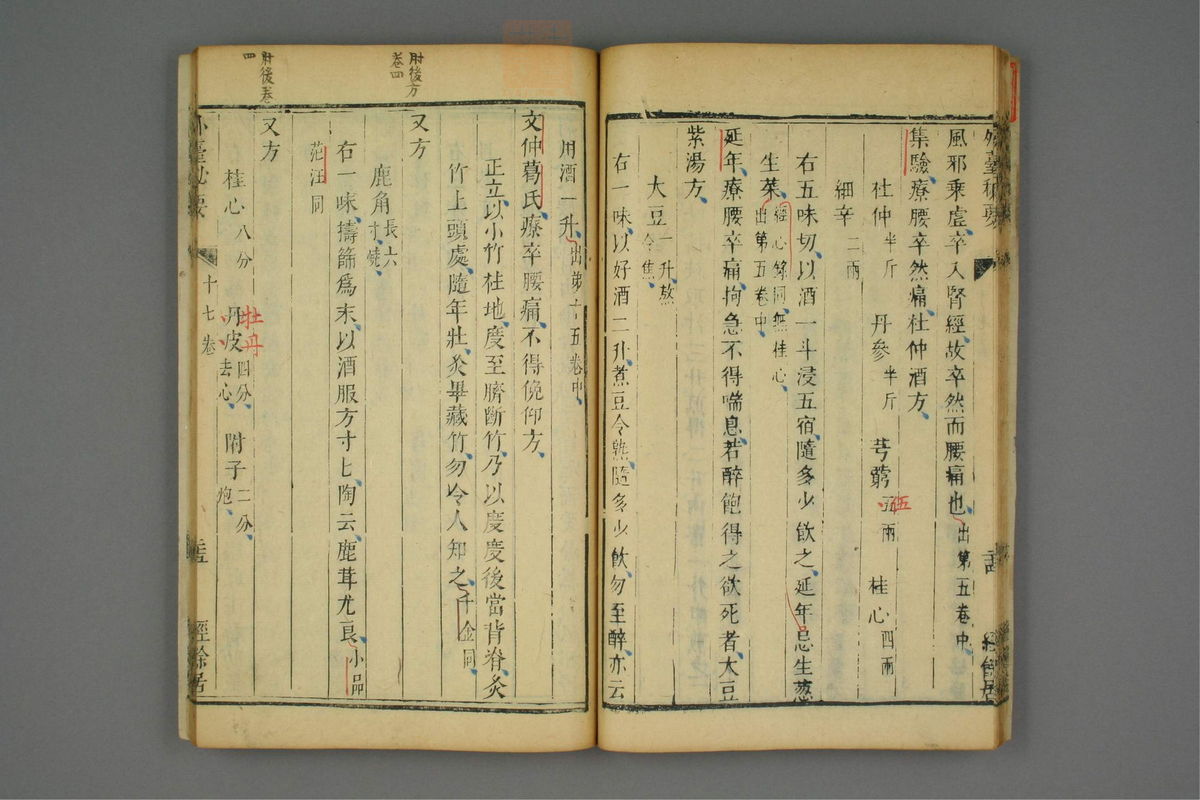 風邪乘虛卒入腎經故卒然而腰痛也出第五卷中
集驗療腰卒然痛杜仲酒方
杜仲半斤 丹參半斤 芎藭五兩 桂心四兩
伍
細辛二兩
右五味切以酒一斗浸五宿隨多少飲之延年忌生葱
生菜經心錄同無桂心
出第五卷中
延年療腰卒痛拘急不得喘息若醉飽得之欲死者大豆
紫湯方
大豆一升熬
令焦
右一味以好酒二升煮豆令熟隨多少飲勿至醉亦云
用酒一升出第十五卷中
文仲葛氏療卒腰痛不得俛仰方
正立以小竹柱地度至臍斷竹乃以度度後當背脊灸
竹上頭處隨年壯灸畢藏竹勿令人知之千金同
肘後方
卷四
又方
鹿角長六
寸燒
右一味擣篩為末以酒服方寸匕陶云鹿茸尤良小品
范汪同
肘後卷
四
又方
桂心八分 丹皮四分
去心 附子二分
炮
牡丹
外臺祕要 十七卷 經餘居